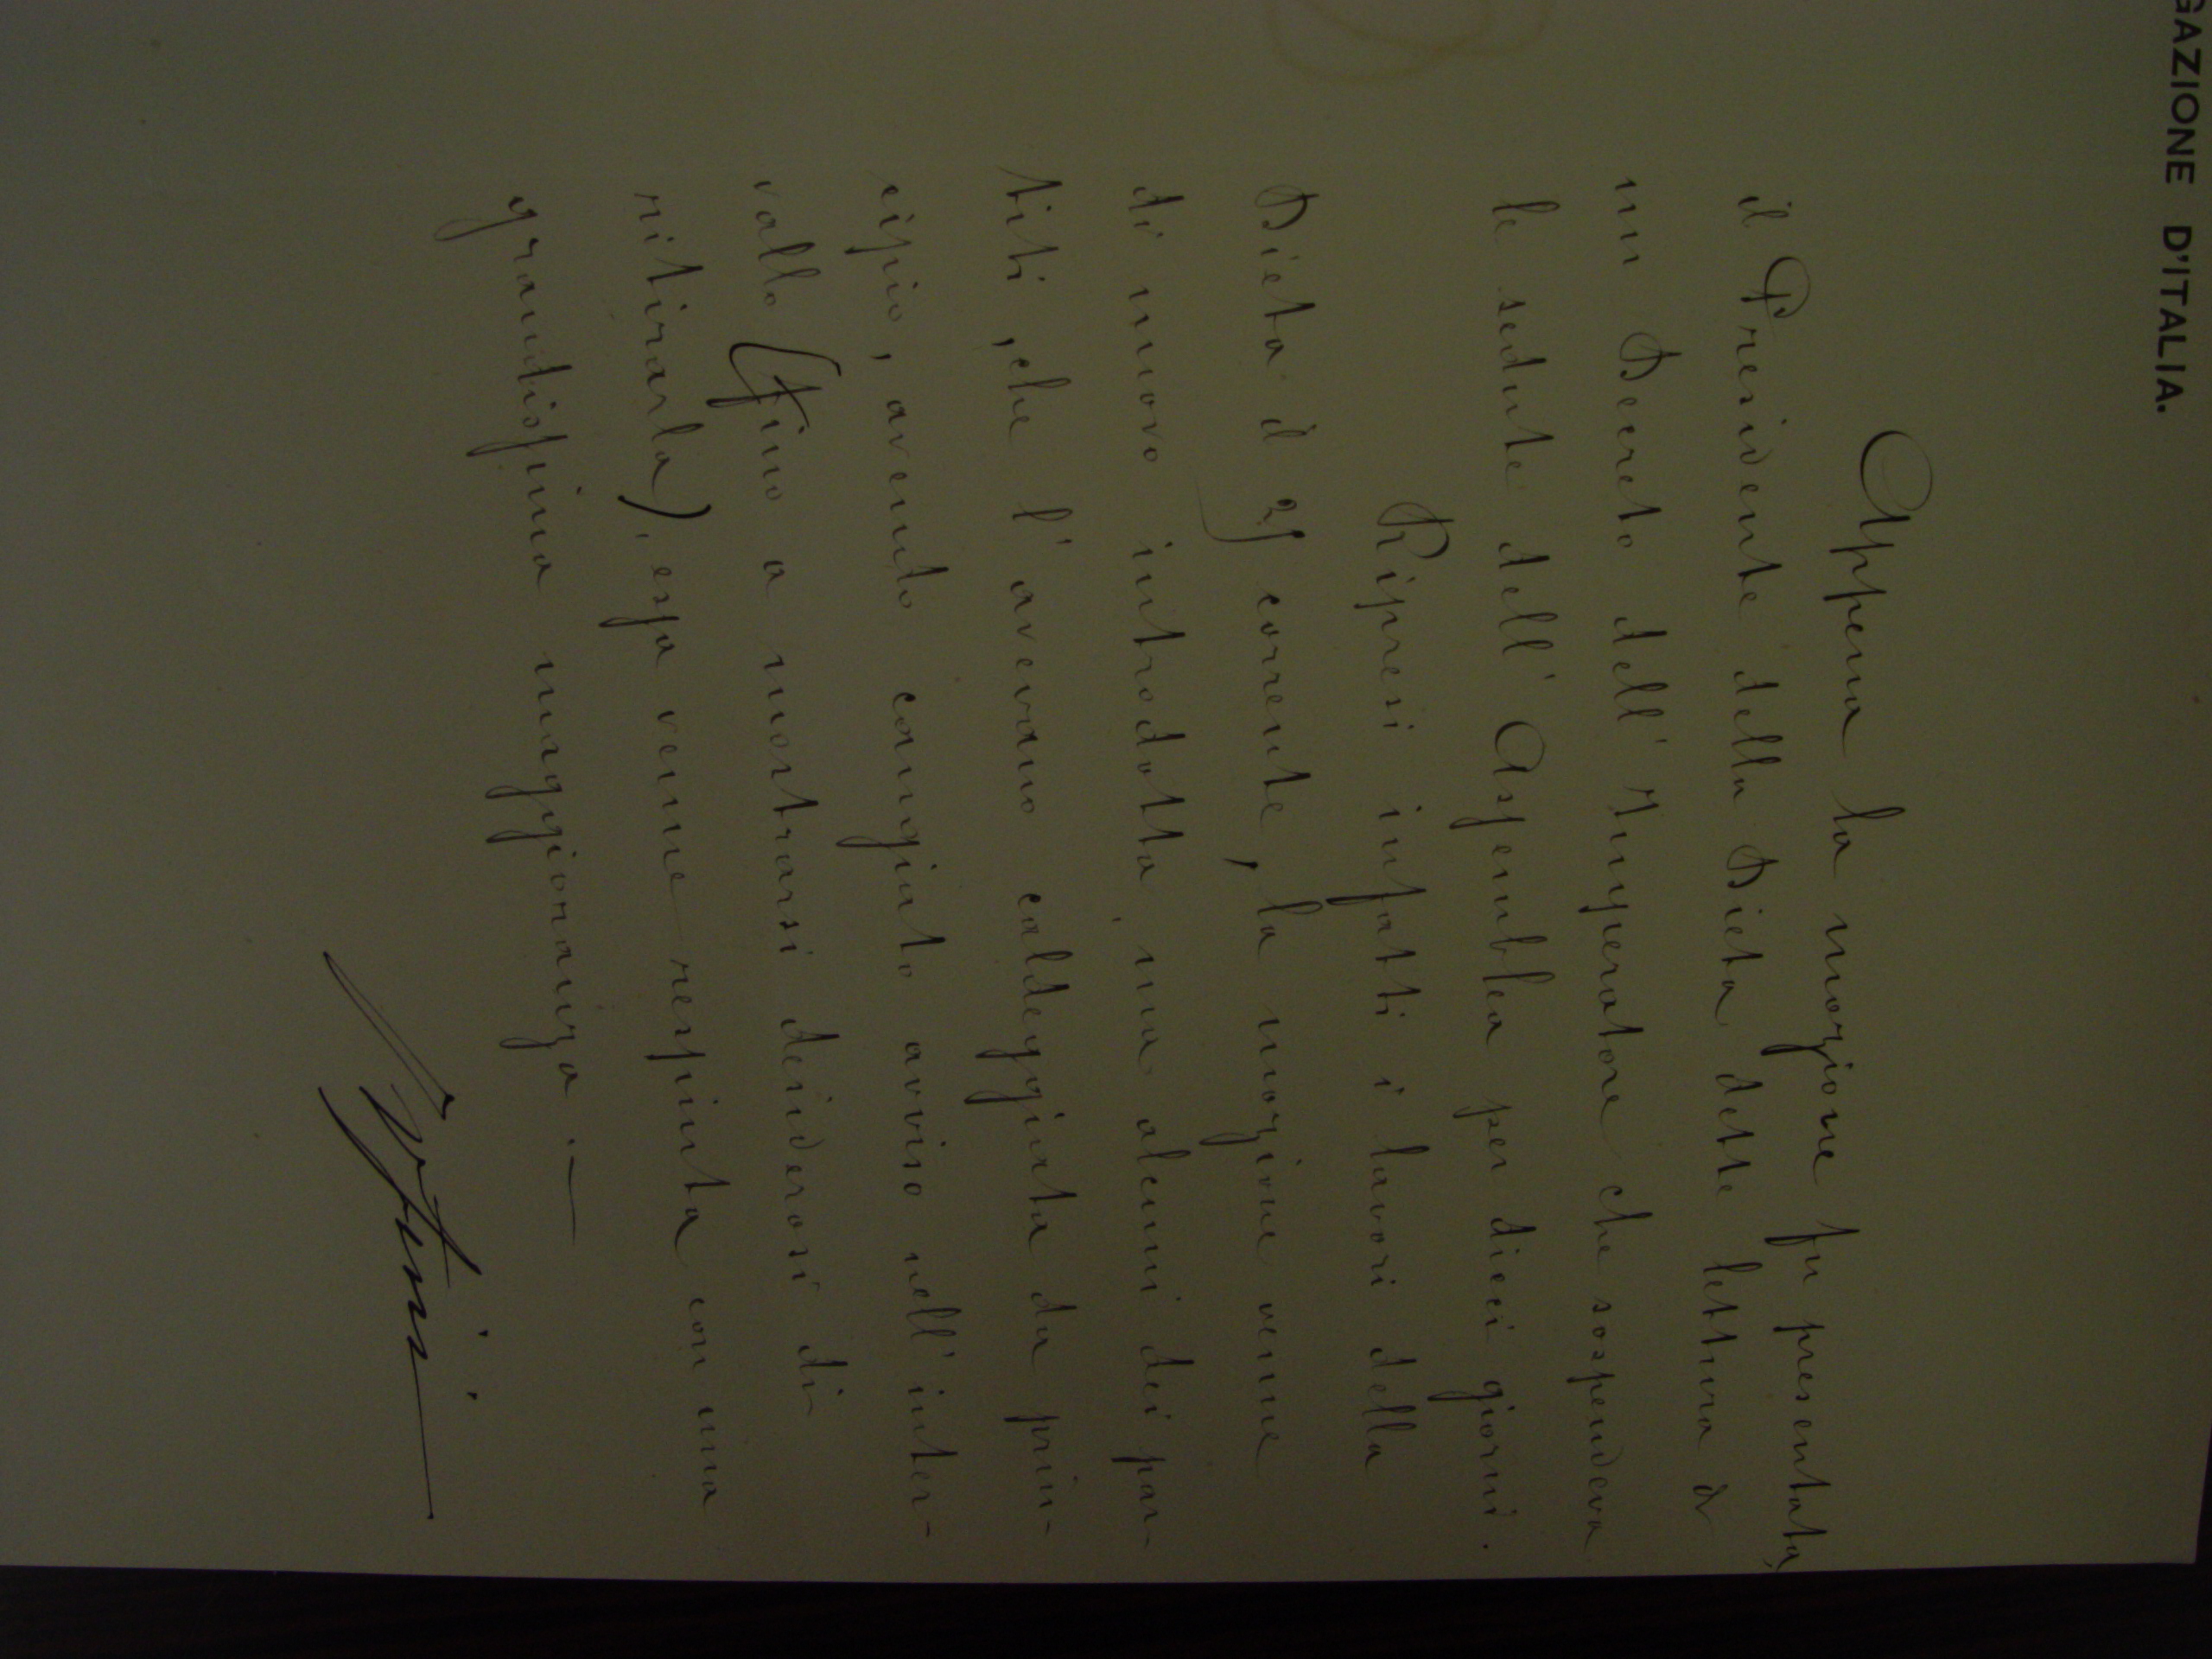 GAZIONE D'ITALIA.
Appena la mozione fu presentata,
il Presidente della Dieta dette lettura a
un Decreto dell'Imperatore che sospendeva
le sedute dell'Assemblea per dieci giorni.
Ripresi infatti i lavori della
Dieta il corrente, la mozione venne
di nuovo introdotta, ma alcuni dei par-
titi, che l'avevano caldeggiata da prin-
cipio, avendo cangiato avviso nell'inter-
vallo (fino a mostrarsi desiderosi di
ritirarla), essa venne respinta con una
grandissima maggioranza. —